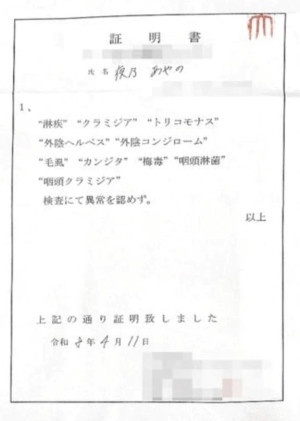 証明書
氏名 綾乃 あやの
1、
“淋疾” “クラミジア” “トリコモナス”
“外陰ヘルペス” “外陰コンジローム”
“毛虱” “カンジタ” “梅毒” “咽頭淋菌”
“咽頭クラミジア”
検査にて異常を認めず。
以上
上記の通り証明致しました
令和 8年4月11日